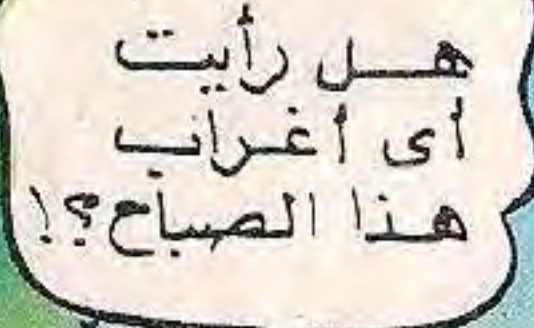 هل رأيت
أى أغراب
هذا الصباح؟!